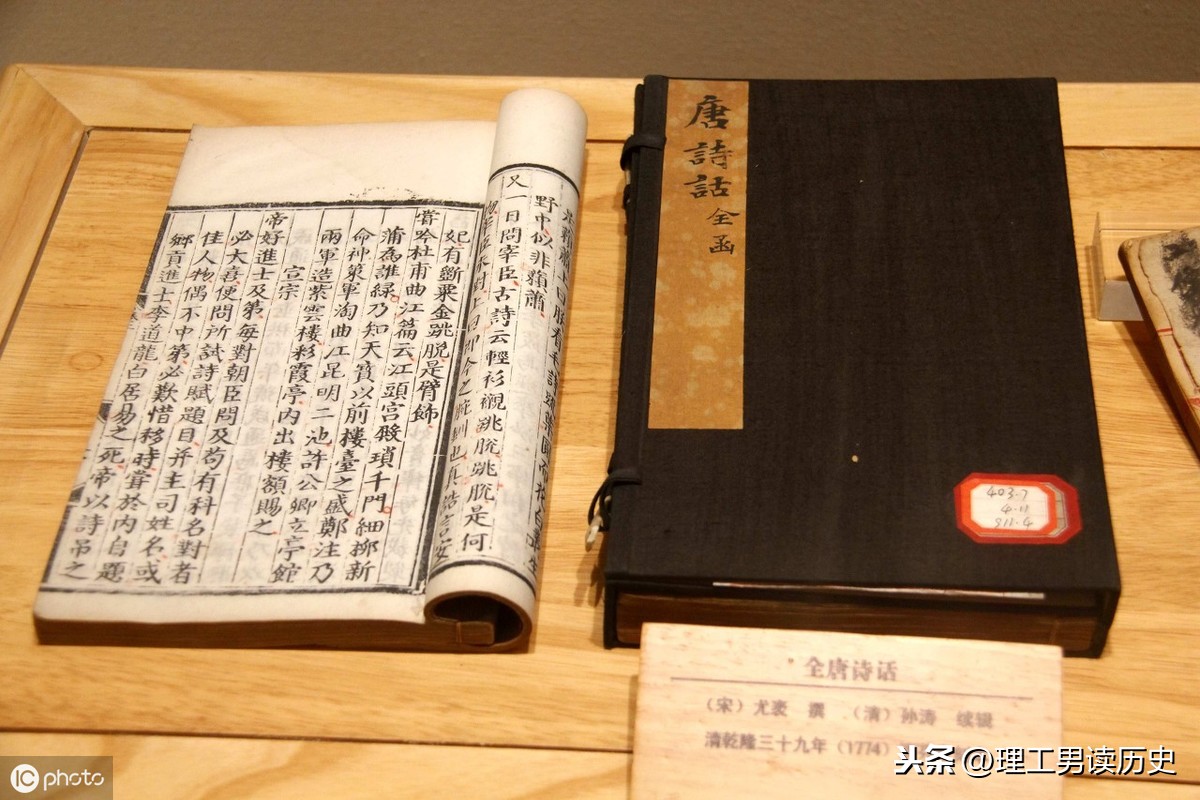 野中似非蘋蕭
又一日問宰臣古詩云輕衫襯跳脫跳脫是何
對上曰即今之腕釧也真誥言安
妃有斷粟金跳脫是臂飾
嘗吟杜甫曲江篇云江頭宮殿鎖千門細柳新
蒲為誰綠乃知天寶以前樓臺之盛鄭注乃
命神策軍淘曲江昆明二池許公卿立亭館
兩軍造紫雲樓彩霞亭內出樓額賜之
宣宗
帝好進士及第每對朝臣問及苟有科名對者
必大喜便問所試詩賦題目并主司姓名或
佳人物偶不中第必歎惜移時嘗於內自題
鄉貢進士李道龍白居易之死帝以詩弔之
唐詩話全函
403.7
4.11
911.4
全唐诗话
（宋）尤袤 撰 （清）孙涛 续辑
清乾隆三十九年（1774）
头条 @理工男读历史
IC photo